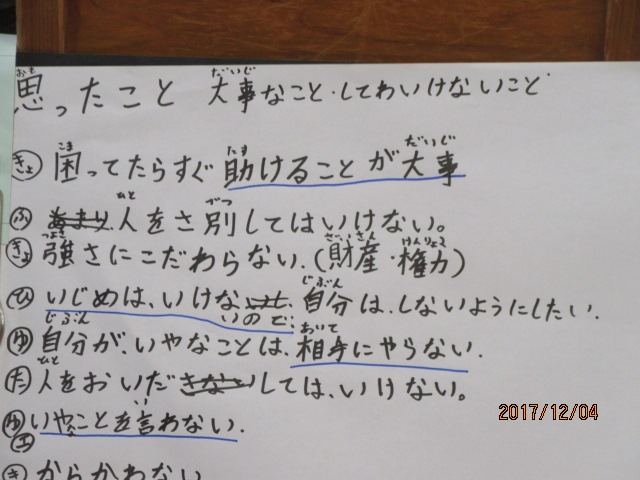 思ったこと 大事なこと・してわいけないこと
きょ 困ってたらすぐ助けることが大事
ふ 人をさ別してはいけない。
きょ 強さにこだわらない.(財産・権力)
ひ いじめは、いけないので、自分は、しないようにしたい.
ゆ 自分が、いやなことは、相手にやらない.
た 人をおいだしては、いけない。
ゆ いやなことを言わない.
き からかわない
2017/12/04